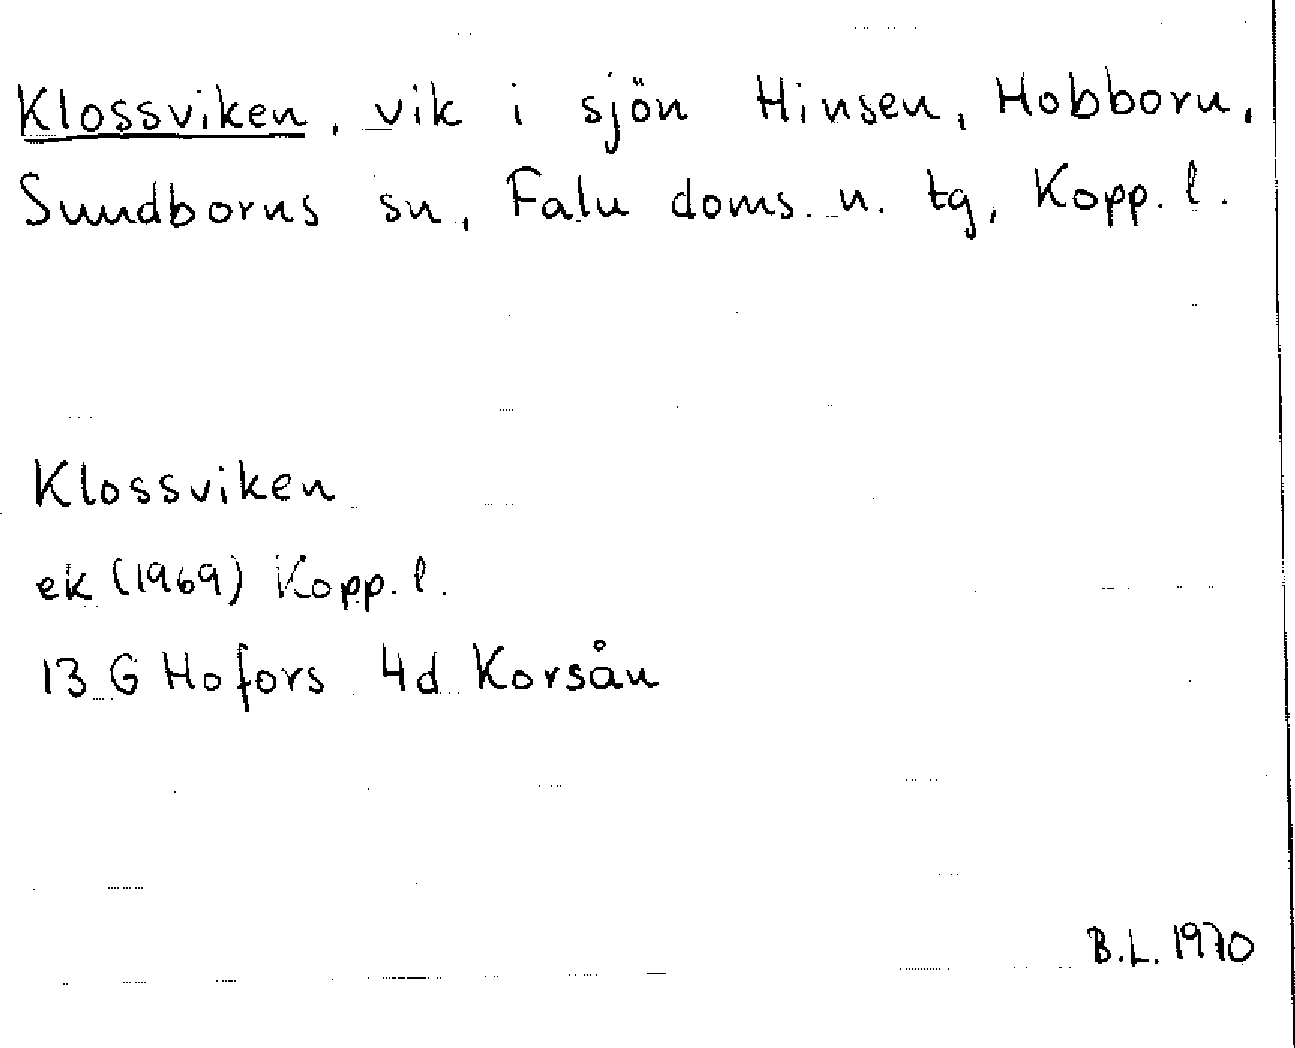 Klossviken, vik i sjön Hinsen, Hobborn,
Sundborns sn, Falu doms. n. tg, Kopp. l.
Klossviken
ek (1969) Kopp. l.
13 G Hofors 4d Korsån
B.L. 1970